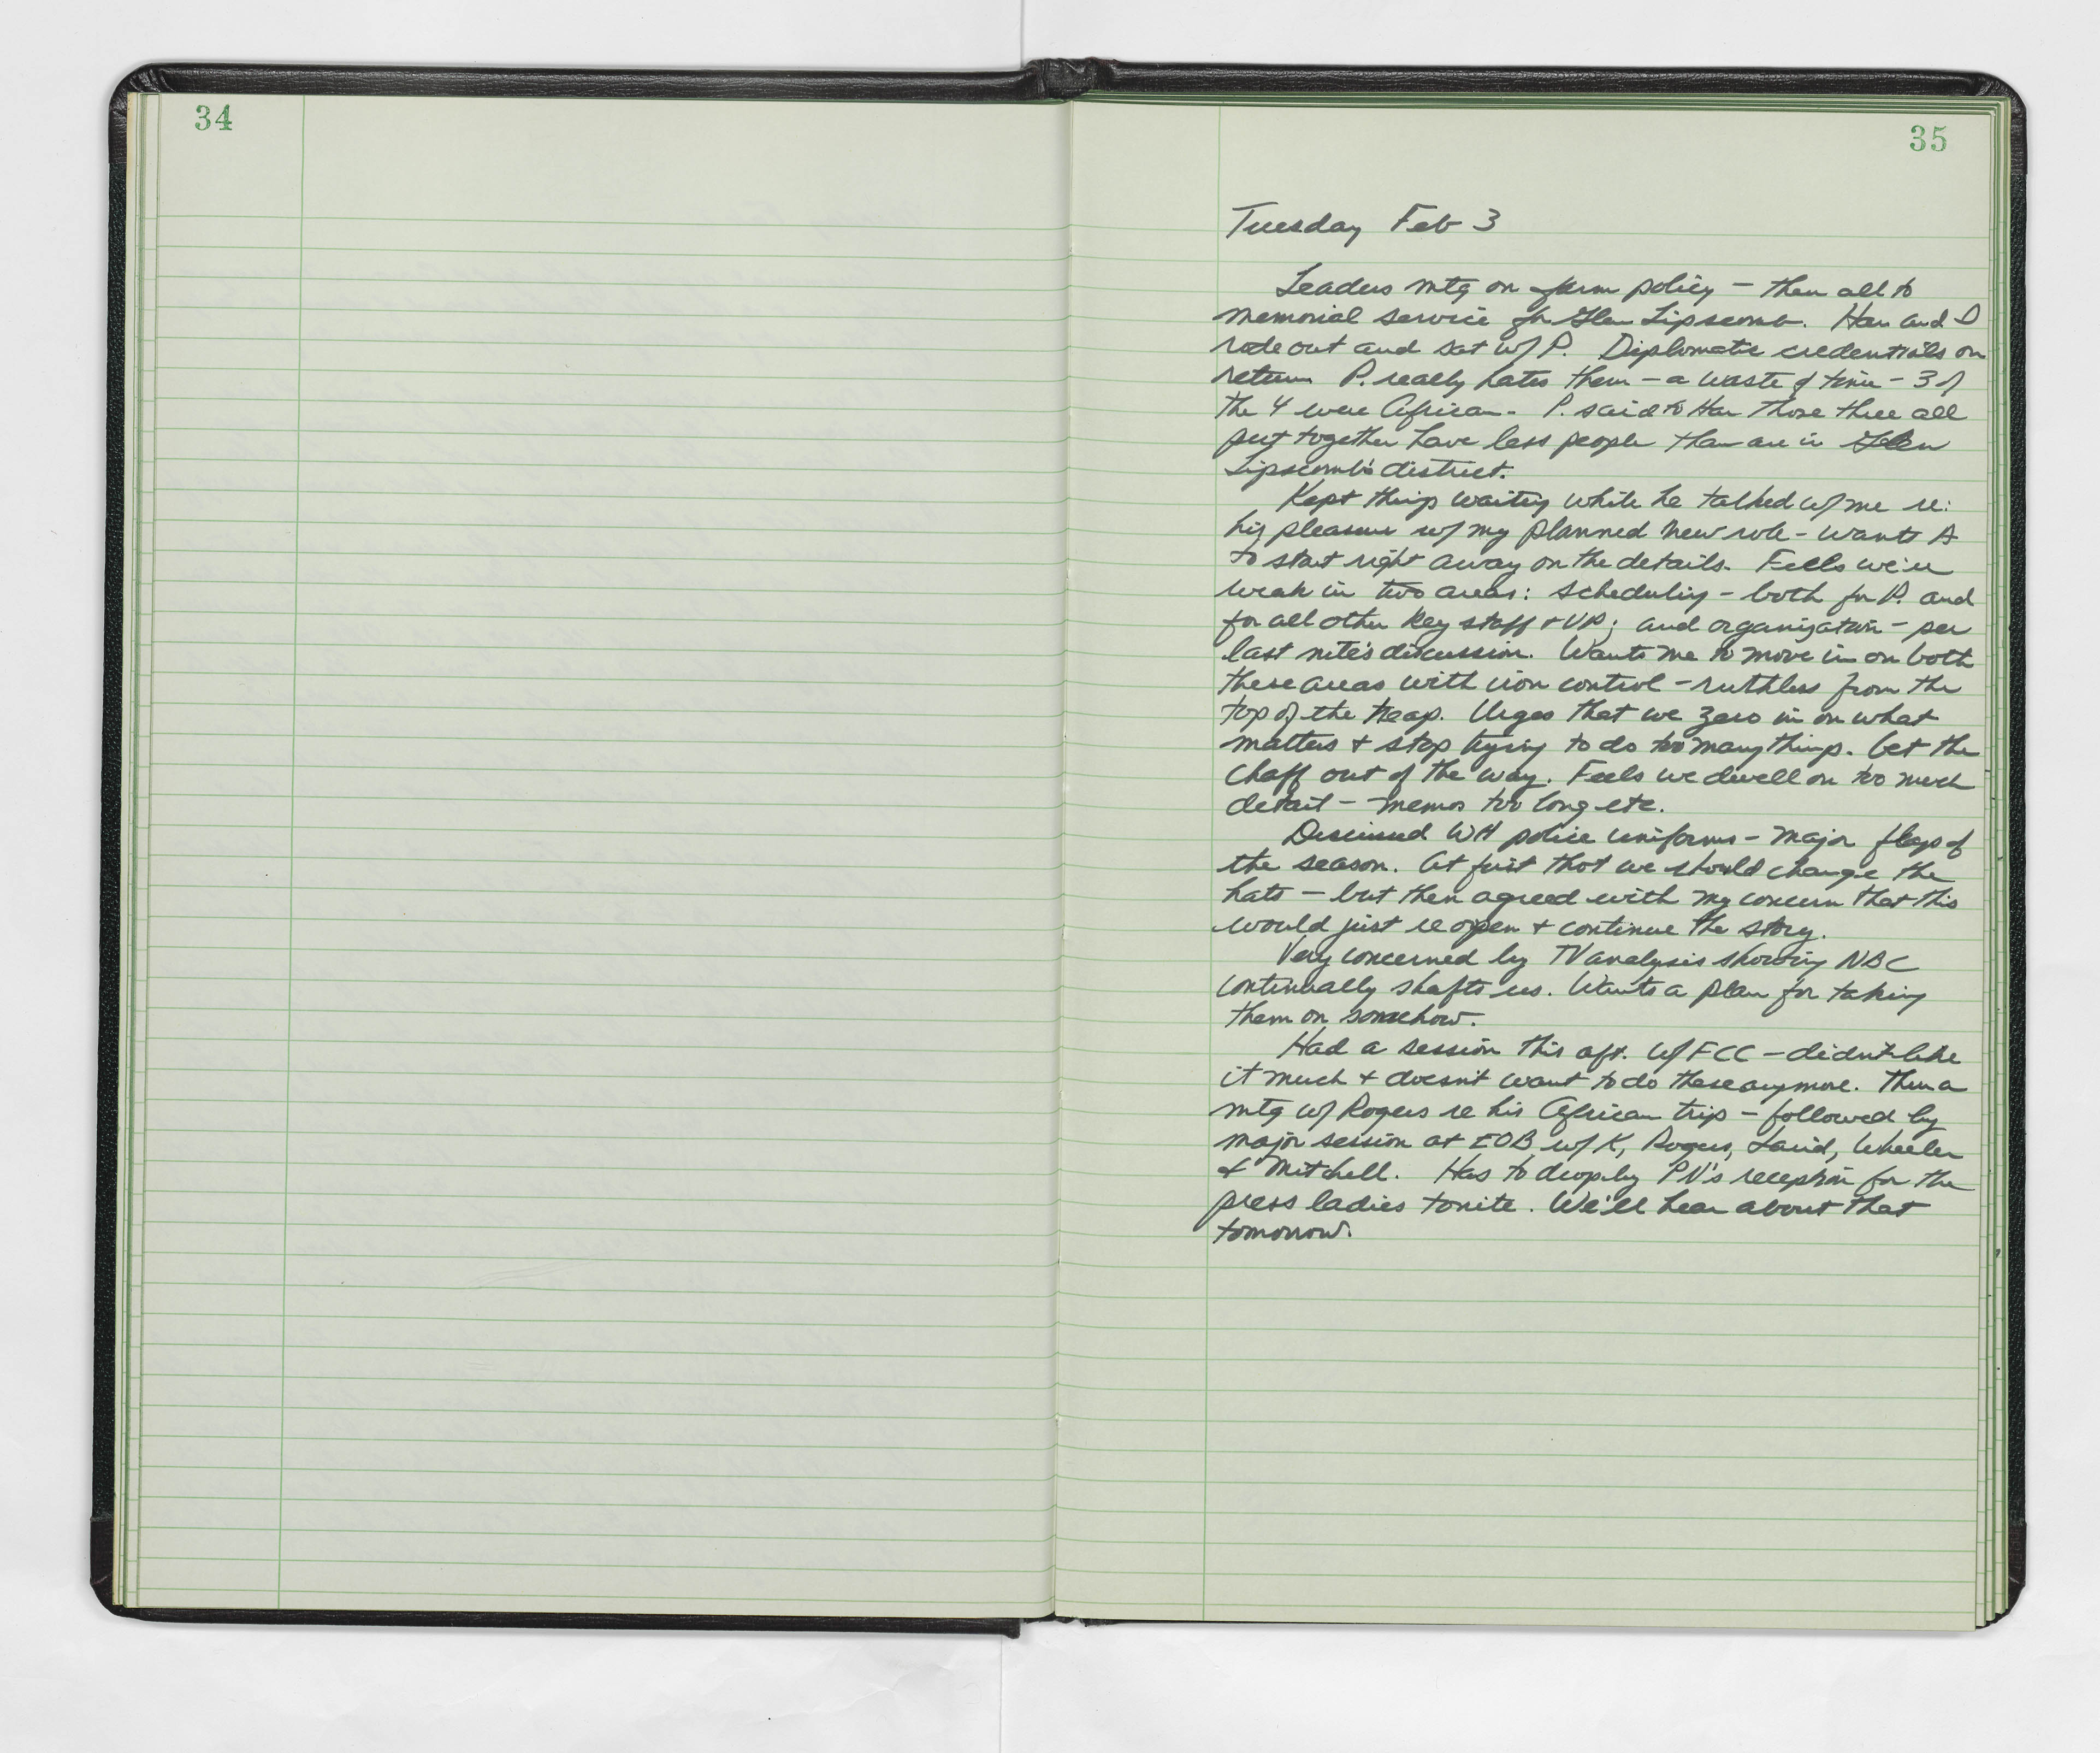 34
35
Tuesday Feb 3
Leaders mtg on farm policy – then all to
memorial service for Glen Lipscomb. Har and I
rode out and sat w/ P. Diplomatic credentials on
return P. really hates them – a waste of time – 3 of
the 4 were African. P. said to Har those three all
put together have less people than are in Glen
Lipscomb's district.
Kept things waiting while he talked w/ me re:
his pleasure w/ my planned new role – wants
to start right away on the details. Feels we're
weak in two areas: scheduling – both for P. and
for all other key staff + VP; and organization – per
last nite's discussion. Wants me to move in on both
these areas with iron control – ruthless from the
top of the heap. Urges that we zero in on what
matters + stop trying to do too many things. Get the
chaff out of the way. Feels we dwell on too much
detail – memos too long etc.
Discussed WH police uniforms – major flap of
the season. At first thot we should change the
hats – but then agreed with my concern that this
would just reopen + continue the story.
Very concerned by TV analysis showing NBC
continually shafts us. Wants a plan for taking
them on somehow.
Had a session this aft. w/ FCC – didn't like
it much + doesn't want to do these anymore. Then a
mtg w/ Rogers re his African trip – followed by
major session at EOB w/ K, Rogers, Laird, Wheeler
& Mitchell. Has to drop by PN's reception for the
press ladies tonite. We'll hear about that
tomorrow.